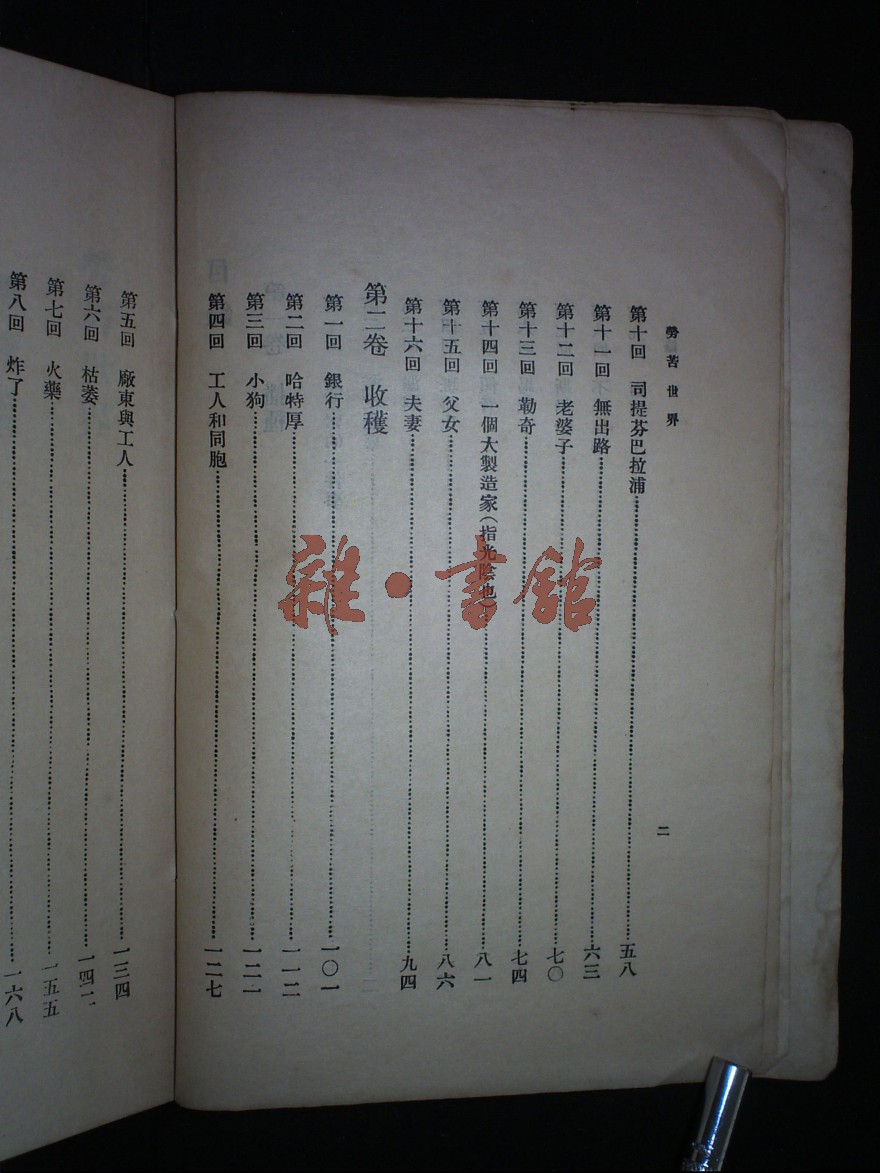 勞苦世界
第十回 司提芬巴拉浦……五八
第十一回 無出路……六三
第十二回 老婆子……七〇
第十三回 勒奇……七四
第十四回 一個大製造家(指光陰也)……八一
第十五回 父女……八六
第十六回 夫妻……九四
第二卷 收穫
第一回 銀行……一〇一
第二回 哈特厚……一一二
第三回 小狗……一二一
第四回 工人和同胞……一二七
二
第五回 廠東與工人……一三四
第六回 枯萎……一四二
第七回 火藥……一五五
第八回 炸了……一六八
雜·書館